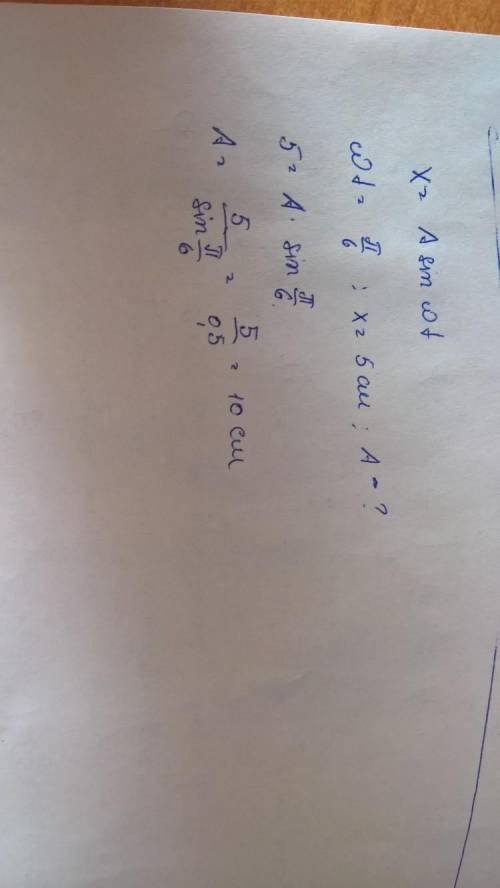 x = A sin ωt
ωt = π/6 ; x = 5 см ; A - ?
5 = A · sin π/6
A = 5/sin π/6 = 5/0,5 = 10 см